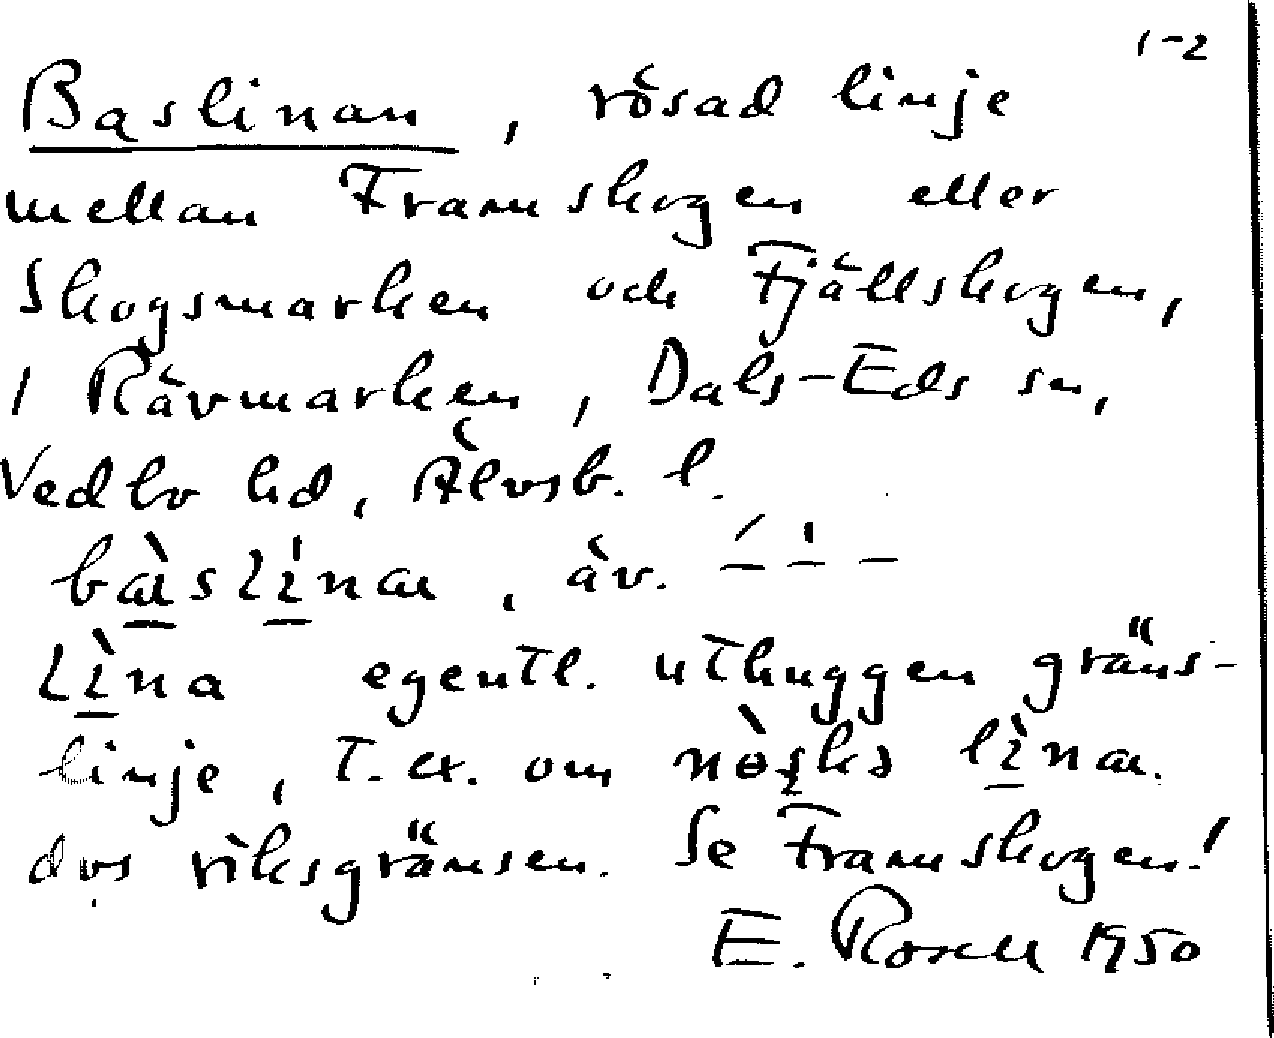 1-2
Baslinan, rösad linje
mellan Framskogen eller
Skogsmarken och Fjällskogen,
i Rävmarken, Dals-Eds sn,
Vedbo hd, Älvsb. l.
bàslína, äv.
lìna egentl. uthuggen gräns-
linje, t. ex. om lìna.
dvs riksgränsen. Se Framskogen!
E. Rosell 1950